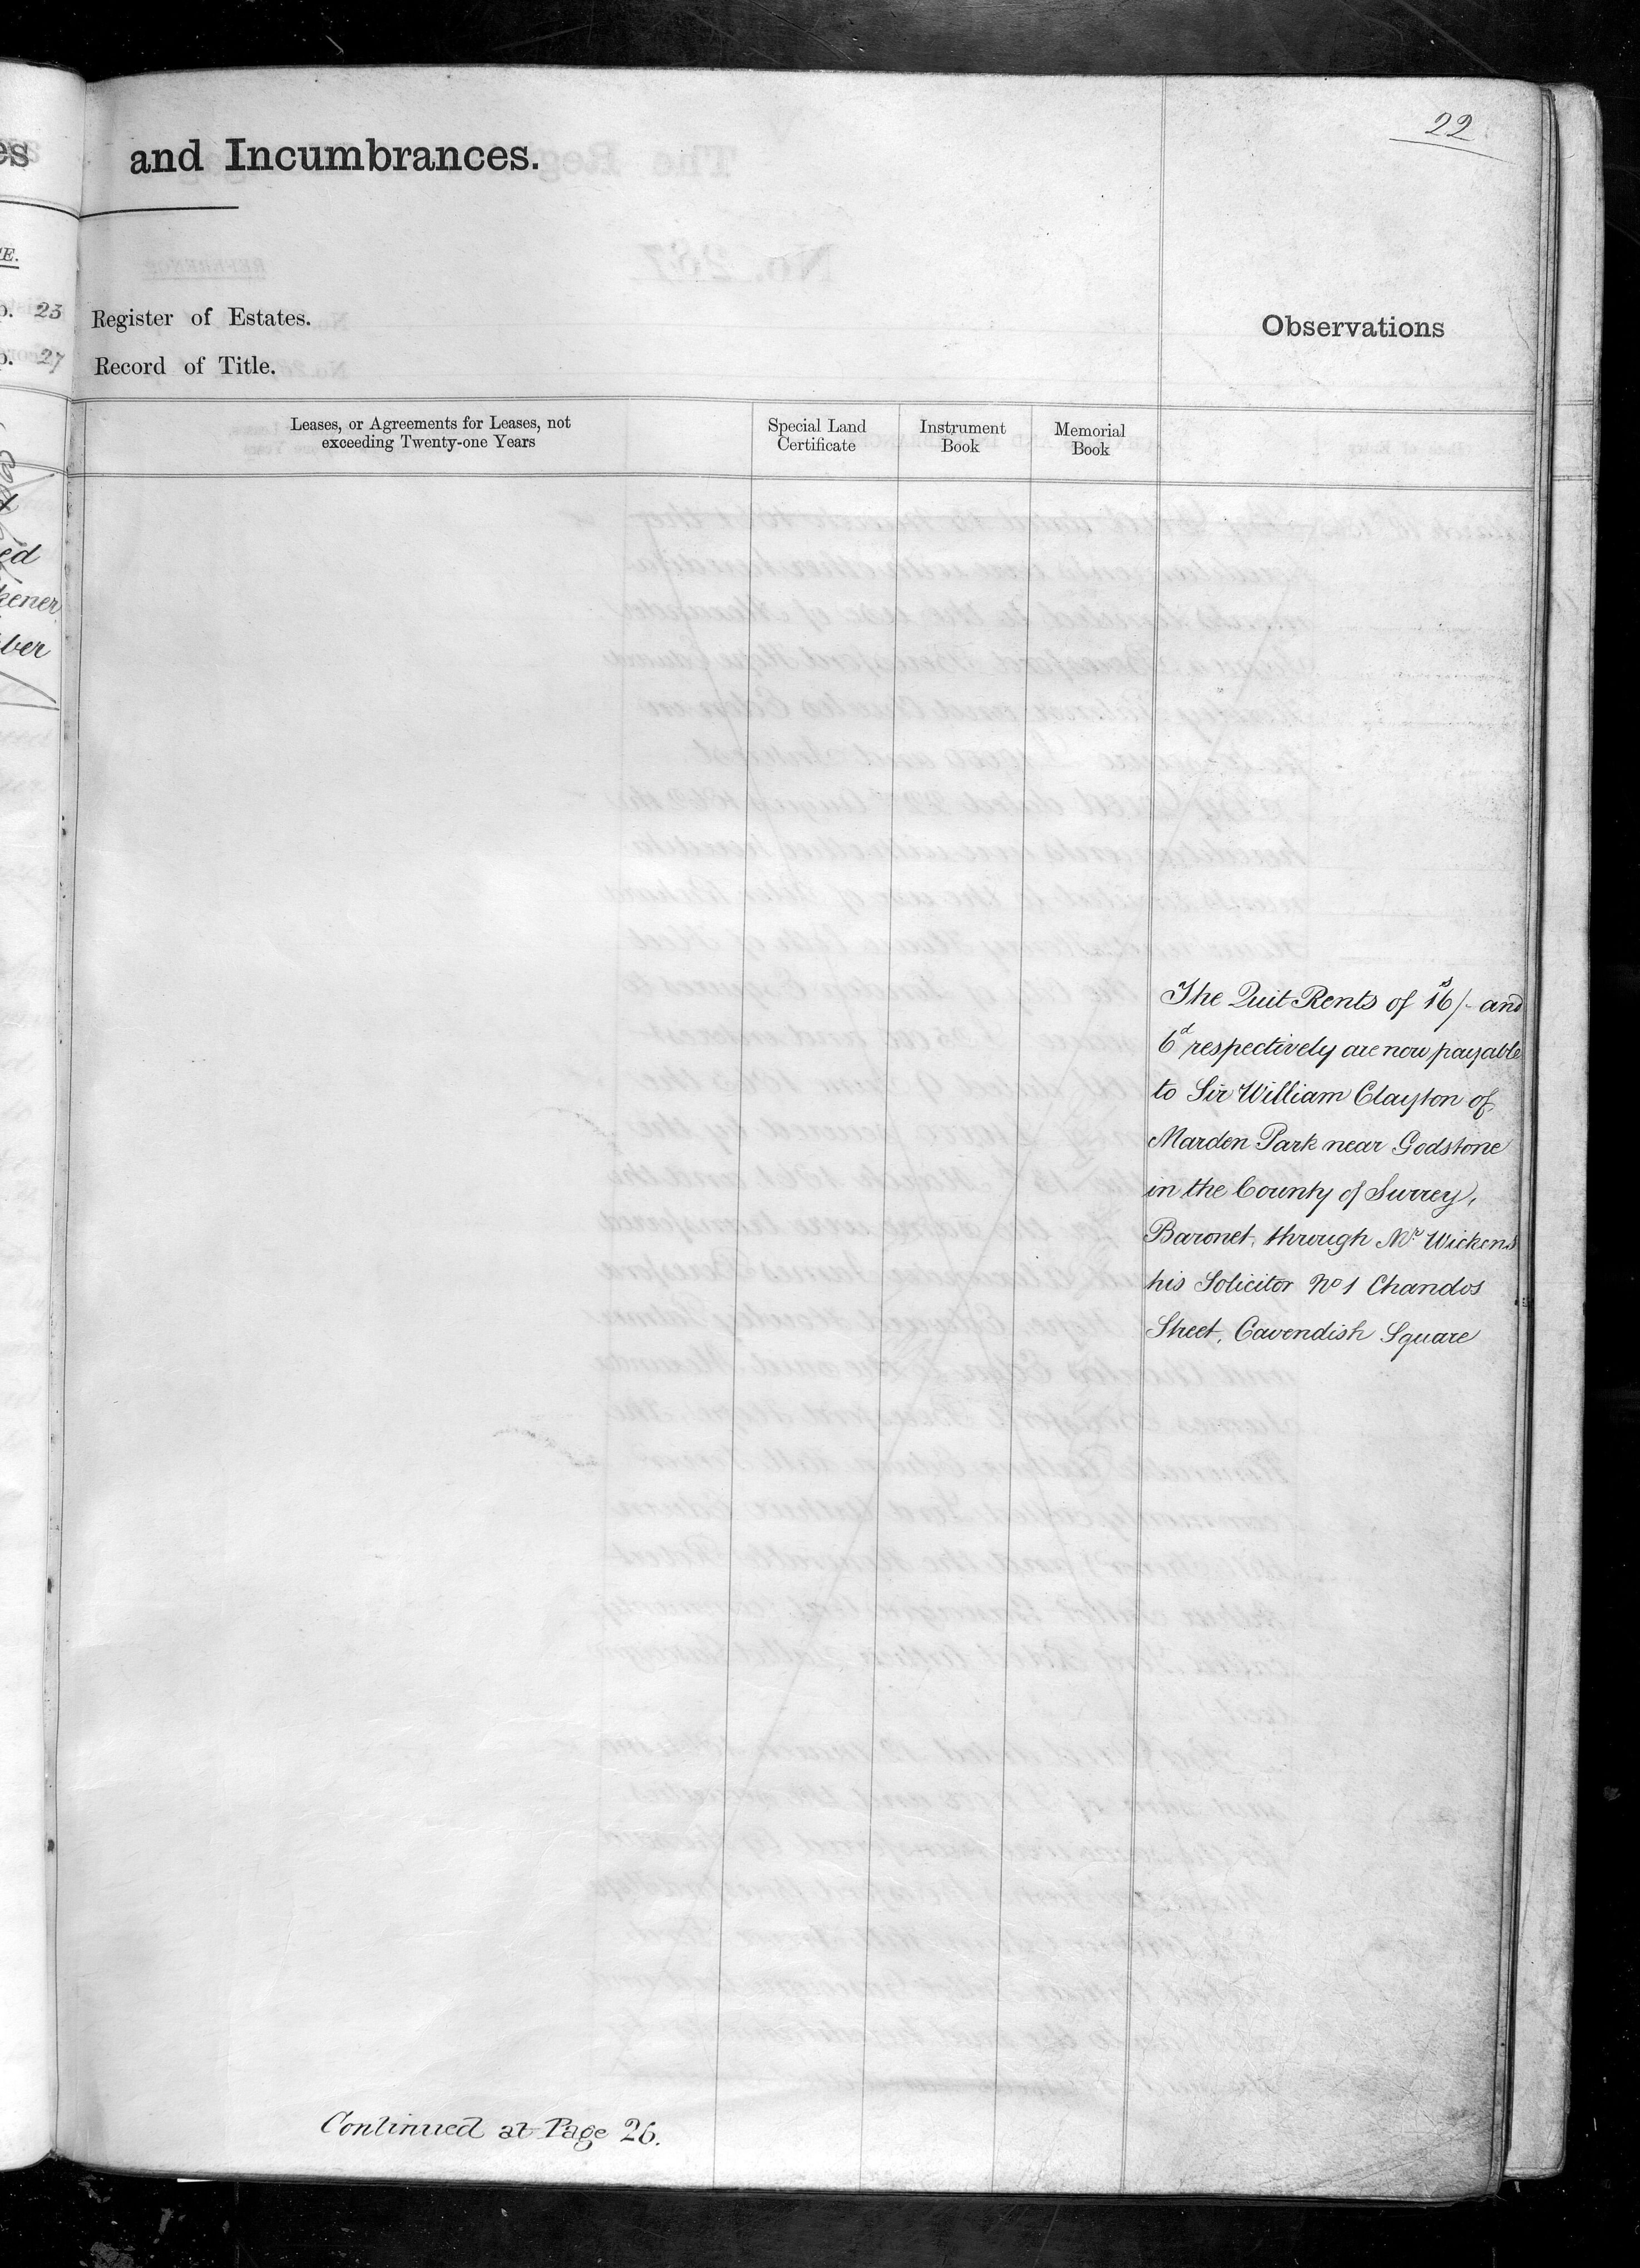 22
and Incumbrances.
Register of Estates.
Record of Title.
Observations
Leases, or Agreements for Leases, not
exceeding Twenty-one Years
Special Land
Certificate
Instrument
Book
Memorial
Book
The Quit Rents of 16/- and
6d respectively are now payable
to Sir William Clayton of
Marden Park near Godstone
in the County of Surrey,
Baronet, through Mr Wickens
his Solicitor No 1 Chandos
Street, Cavendish Square
Continued at Page 26.
p. 23
p. 27